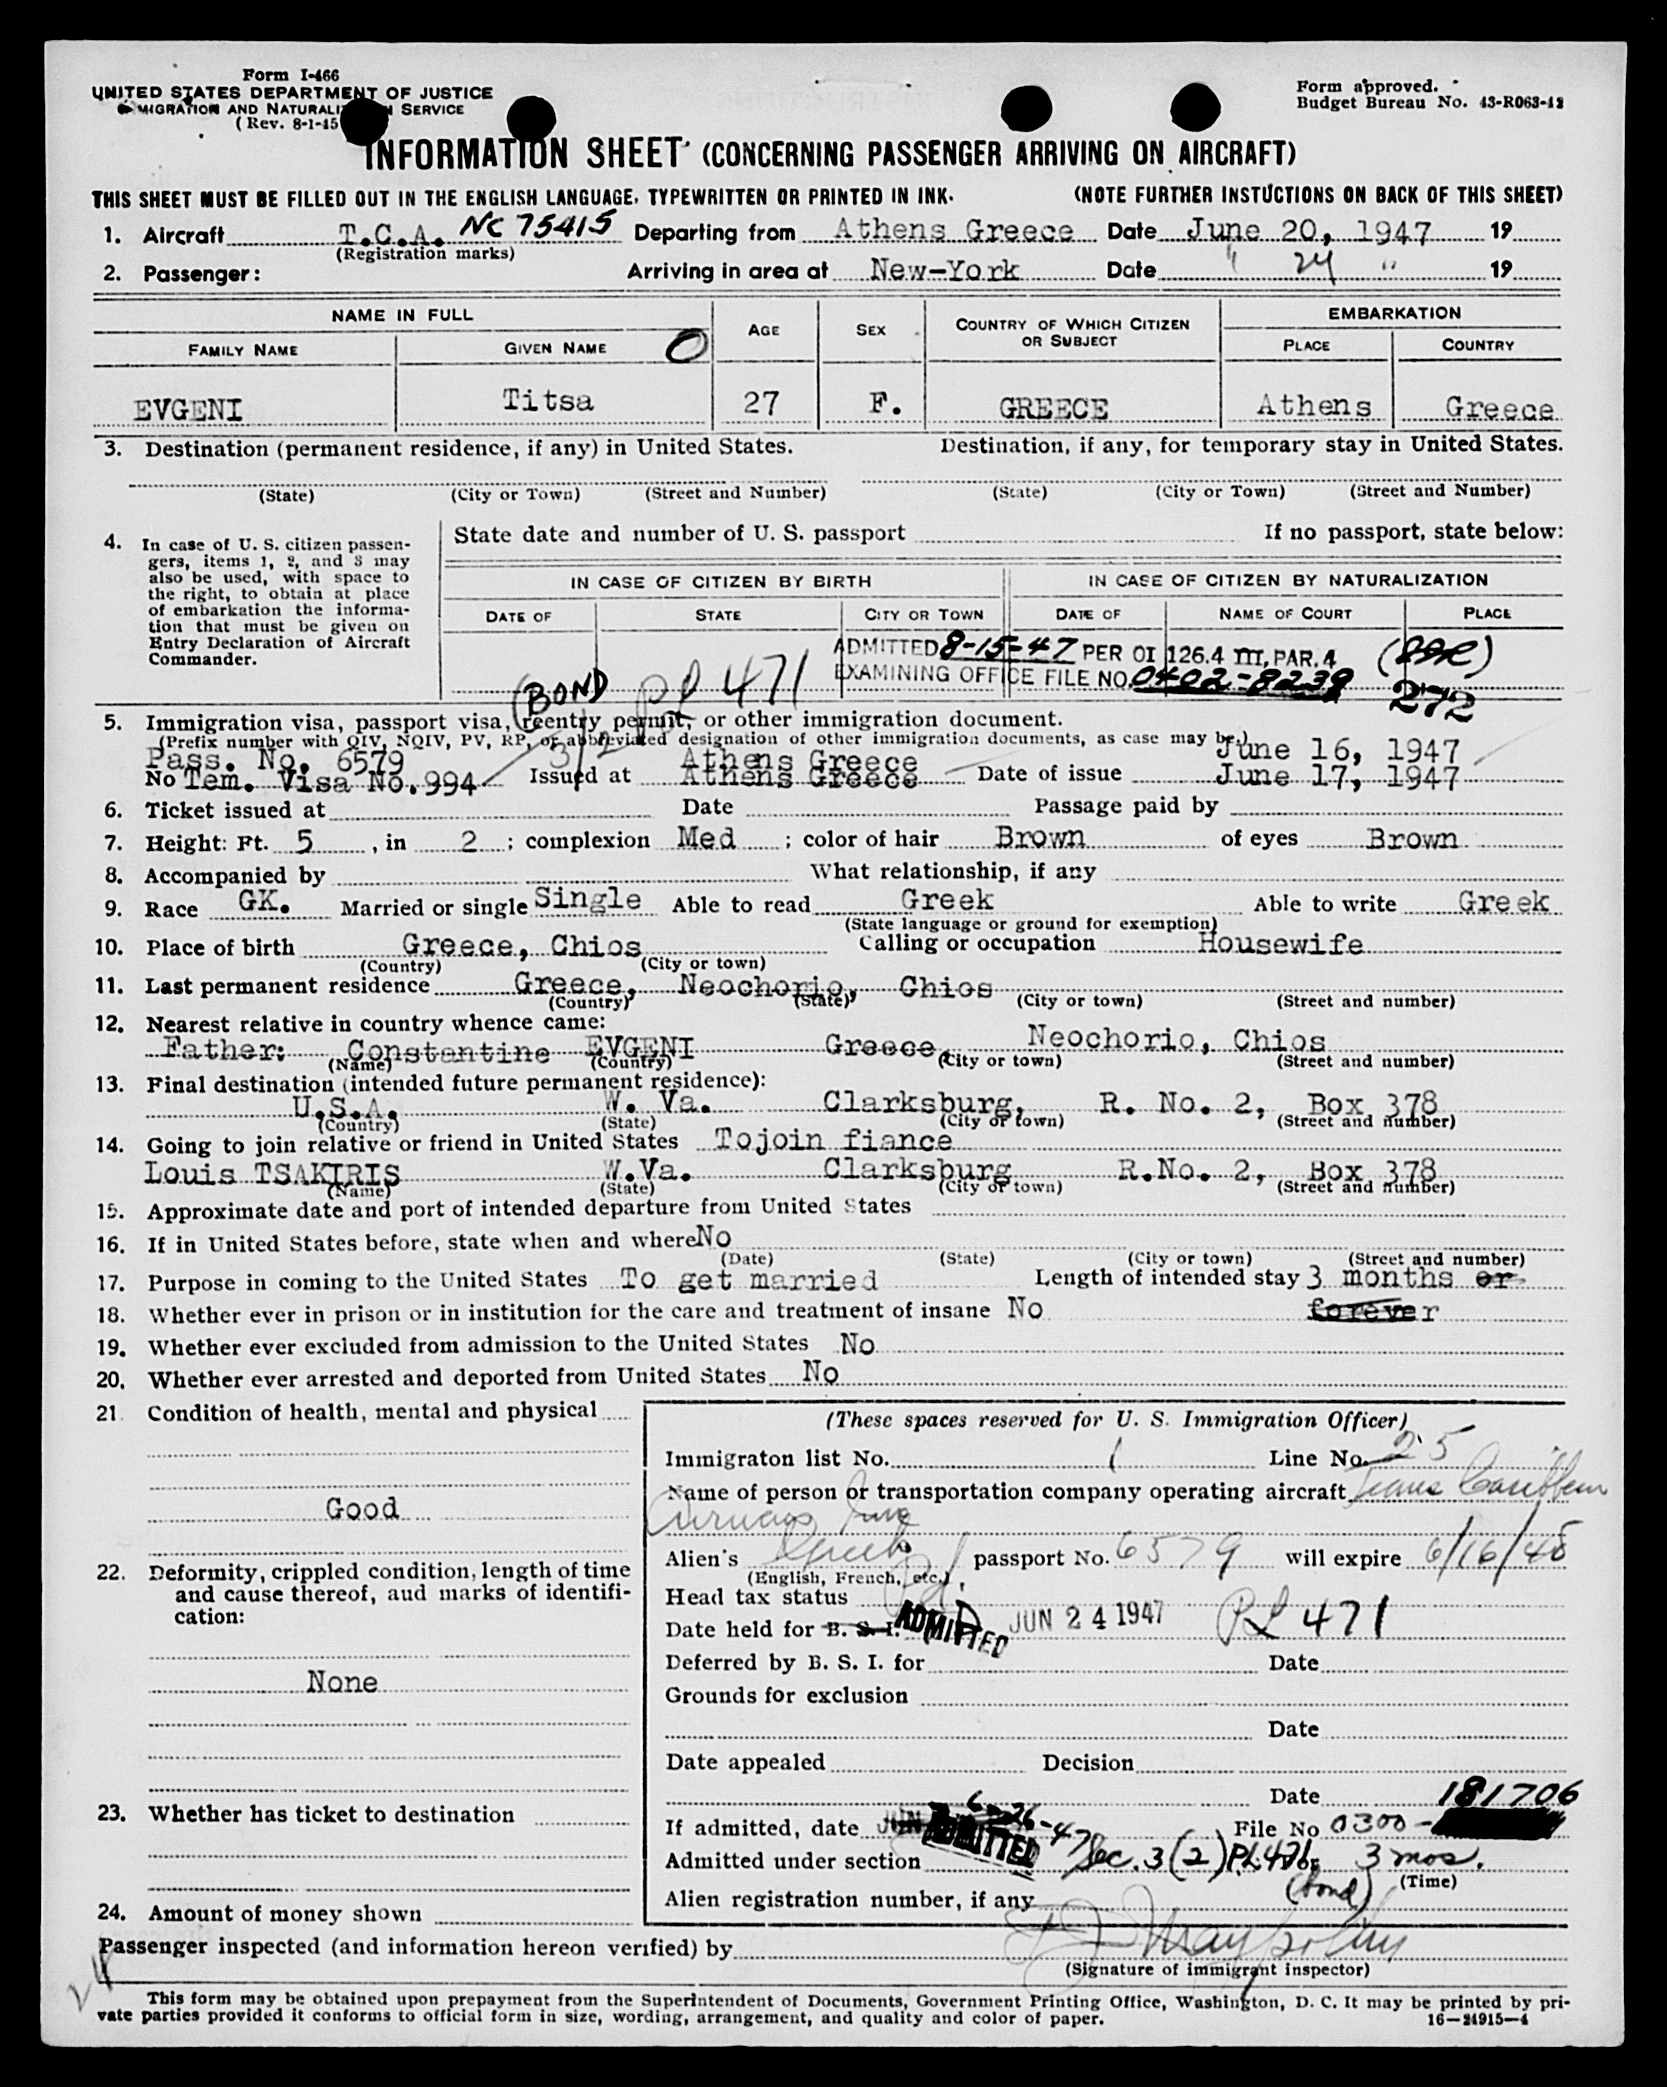 Form I-466
UNITED STATES DEPARTMENT OF JUSTICE
IMMIGRATION AND NATURALIZATION SERVICE
(Rev. 8-1-45
Form approved.
Budget Bureau No. 43-R063-42
INFORMATION SHEET (CONCERNING PASSENGER ARRIVING ON AIRCRAFT)
THIS SHEET MUST BE FILLED OUT IN THE ENGLISH LANGUAGE. TYPEWRITTEN OR PRINTED IN INK. (NOTE FURTHER INSTUCTIONS ON BACK OF THIS SHEET)
1. Aircraft T.C.A. NC 75415 Departing from Athens Greece Date June 20, 1947 19
(Registration marks)
2. Passenger: Arriving in area at New-York Date " 24 " 19
NAME IN FULL AGE SEX COUNTRY OF WHICH CITIZEN OR SUBJECT EMBARKATION
FAMILY NAME GIVEN NAME O PLACE COUNTRY
EVGENI Titsa 27 F. GREECE Athens Greece
3. Destination (permanent residence, if any) in United States. Destination, if any, for temporary stay in United States.
(State) (City or Town) (Street and Number) (State) (City or Town) (Street and Number)
4. In case of U. S. citizen passen-
gers, items 1, 2, and 3 may
also be used, with space to
the right, to obtain at place
of embarkation the informa-
tion that must be given on
Entry Declaration of Aircraft
Commander.
State date and number of U. S. passport If no passport, state below:
IN CASE OF CITIZEN BY BIRTH IN CASE OF CITIZEN BY NATURALIZATION
DATE OF STATE CITY OR TOWN DATE OF NAME OF COURT PLACE
ADMITTED 8-15-47 PER OI 126.4 III, PAR. 4
EXAMINING OFFICE FILE NO. 0402-8239
272
(BOND PL 471
5. Immigration visa, passport visa, reentry permit, or other immigration document.
(Prefix number with QIV, NQIV, PV, RP, or abbreviated designation of other immigration documents, as case may be.)
Pass. No. 6579 Athens Greece June 16, 1947
No Tem. Visa No. 994 Issued at Athens Greece Date of issue June 17, 1947
6. Ticket issued at Date Passage paid by
7. Height: Ft. 5, in 2; complexion Med; color of hair Brown of eyes Brown
8. Accompanied by What relationship, if any
9. Race GK. Married or single Single Able to read Greek Able to write Greek
(State language or ground for exemption)
10. Place of birth Greece, Chios Calling or occupation Housewife
(Country) (City or town)
11. Last permanent residence Greece, Neochorio, Chios
(Country) (State) (City or town) (Street and number)
12. Nearest relative in country whence came:
Father: Constantine EVGENI Greece, Neochorio, Chios
(Name) (Country) (City or town) (Street and number)
13. Final destination (intended future permanent residence):
U.S.A. W. Va. Clarksburg, R. No. 2, Box 378
(Country) (State) (City or town) (Street and number)
14. Going to join relative or friend in United States Tojoin fiance
Louis TSAKIRIS W.Va. Clarksburg R.No. 2, Box 378
(Name) (State) (City or town) (Street and number)
15. Approximate date and port of intended departure from United States
16. If in United States before, state when and where No
(Date) (State) (City or town) (Street and number)
17. Purpose in coming to the United States To get married Length of intended stay 3 months or
forever
18. Whether ever in prison or in institution for the care and treatment of insane No
19. Whether ever excluded from admission to the United States No
20. Whether ever arrested and deported from United States No
21. Condition of health, mental and physical
Good
22. Deformity, crippled condition, length of time
and cause thereof, and marks of identifi-
cation:
None
23. Whether has ticket to destination
24. Amount of money shown
(These spaces reserved for U. S. Immigration Officer)
Immigraton list No. 1 Line No. 25
Name of person or transportation company operating aircraft Trans Caribbean
Airways Inc
Alien's Greek passport No. 6579 will expire 6/16/48
(English, French, etc.)
Head tax status
Date held for B. S. I. ADMITTED JUN 24 1947 PL 471
Deferred by B. S. I. for Date
Grounds for exclusion
Date
Date appealed Decision
Date 181706
If admitted, date 6-26-47 ADMITTED File No 0300-
Admitted under section Sec. 3(2) PL 471 3 mos.
(bond) (Time)
Alien registration number, if any
Passenger inspected (and information hereon verified) by
(Signature of immigrant inspector)
24
This form may be obtained upon prepayment from the Superintendent of Documents, Government Printing Office, Washington, D. C. It may be printed by pri-
vate parties provided it conforms to official form in size, wording, arrangement, and quality and color of paper.
16—24915-1